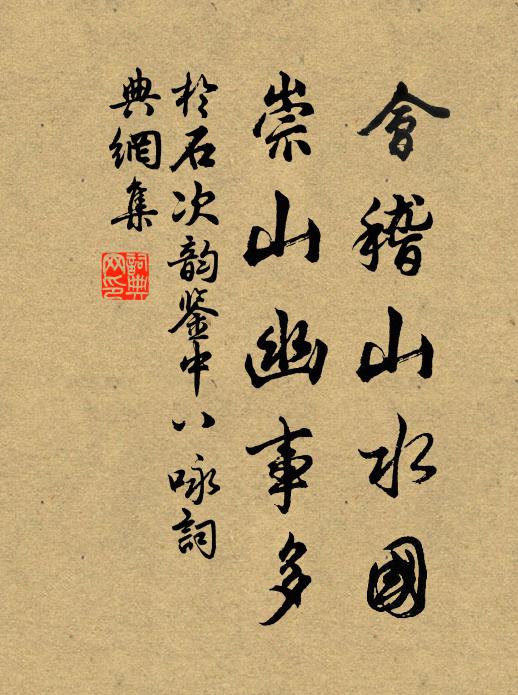 會稽山水國
崇山幽事多
於石次韵鉴中八咏詞
典網集
詞典
网印